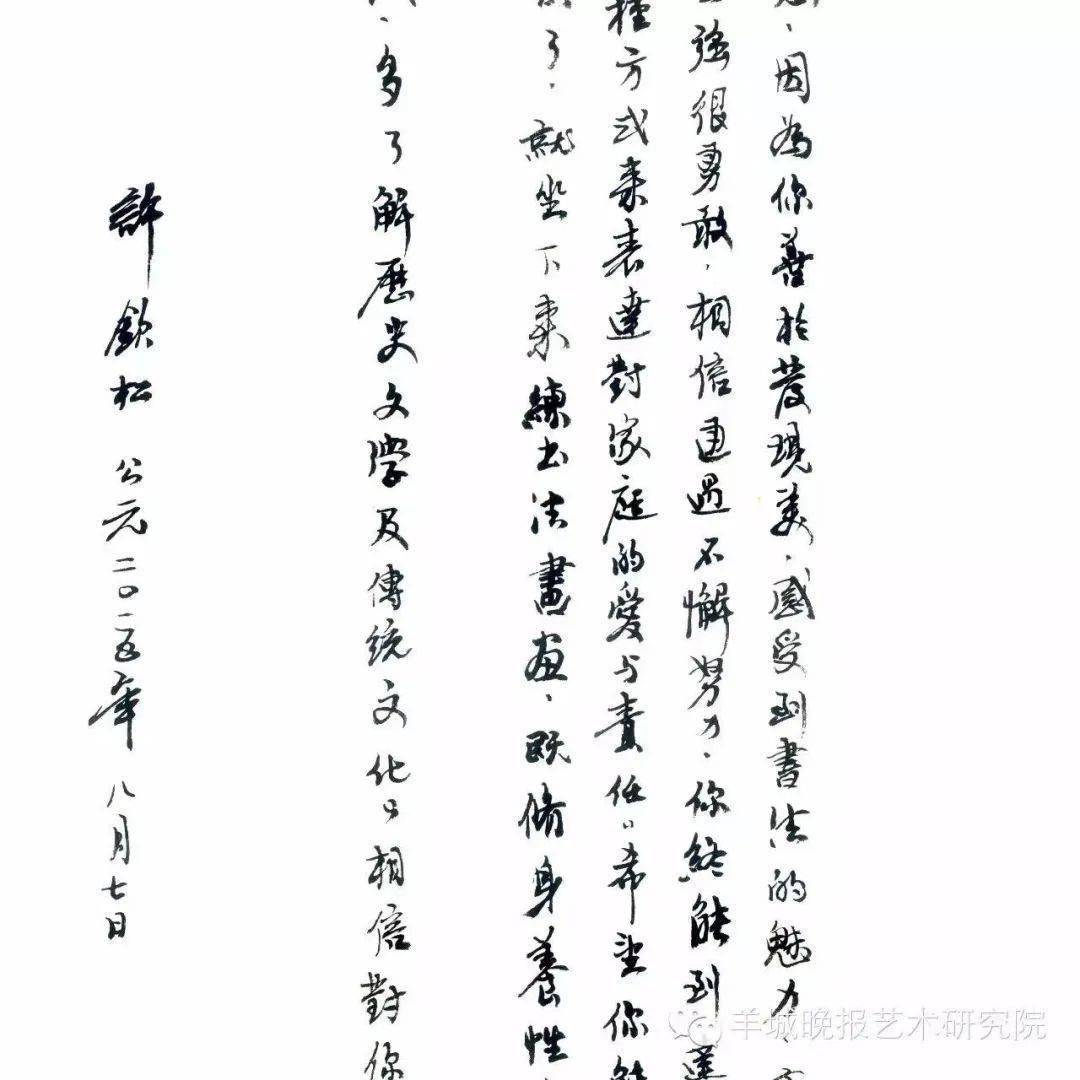 因為你善於發現美，感受到書法的魅力，
強很勇敢，相信通過不懈努力，你終能到達
種方式來表達對家庭的愛与責任。希望你能
了，就坐下來練书法畫画，既修身養性，
，多了解歷史文學及傳統文化。相信對你
許欽松 公元二〇一五年八月七日
羊城晚报艺术研究院